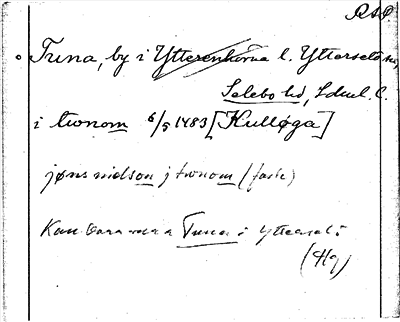 RAP
Tuna, by i Ytterenhörna l. Ytterselö sn,
Selebo hd, Södml. C.
i twnom 6/5 1483 [Kulløga]
jøns nielson j twnom (faste)
Kan vara Tuna i Ytterselö
(Hg)